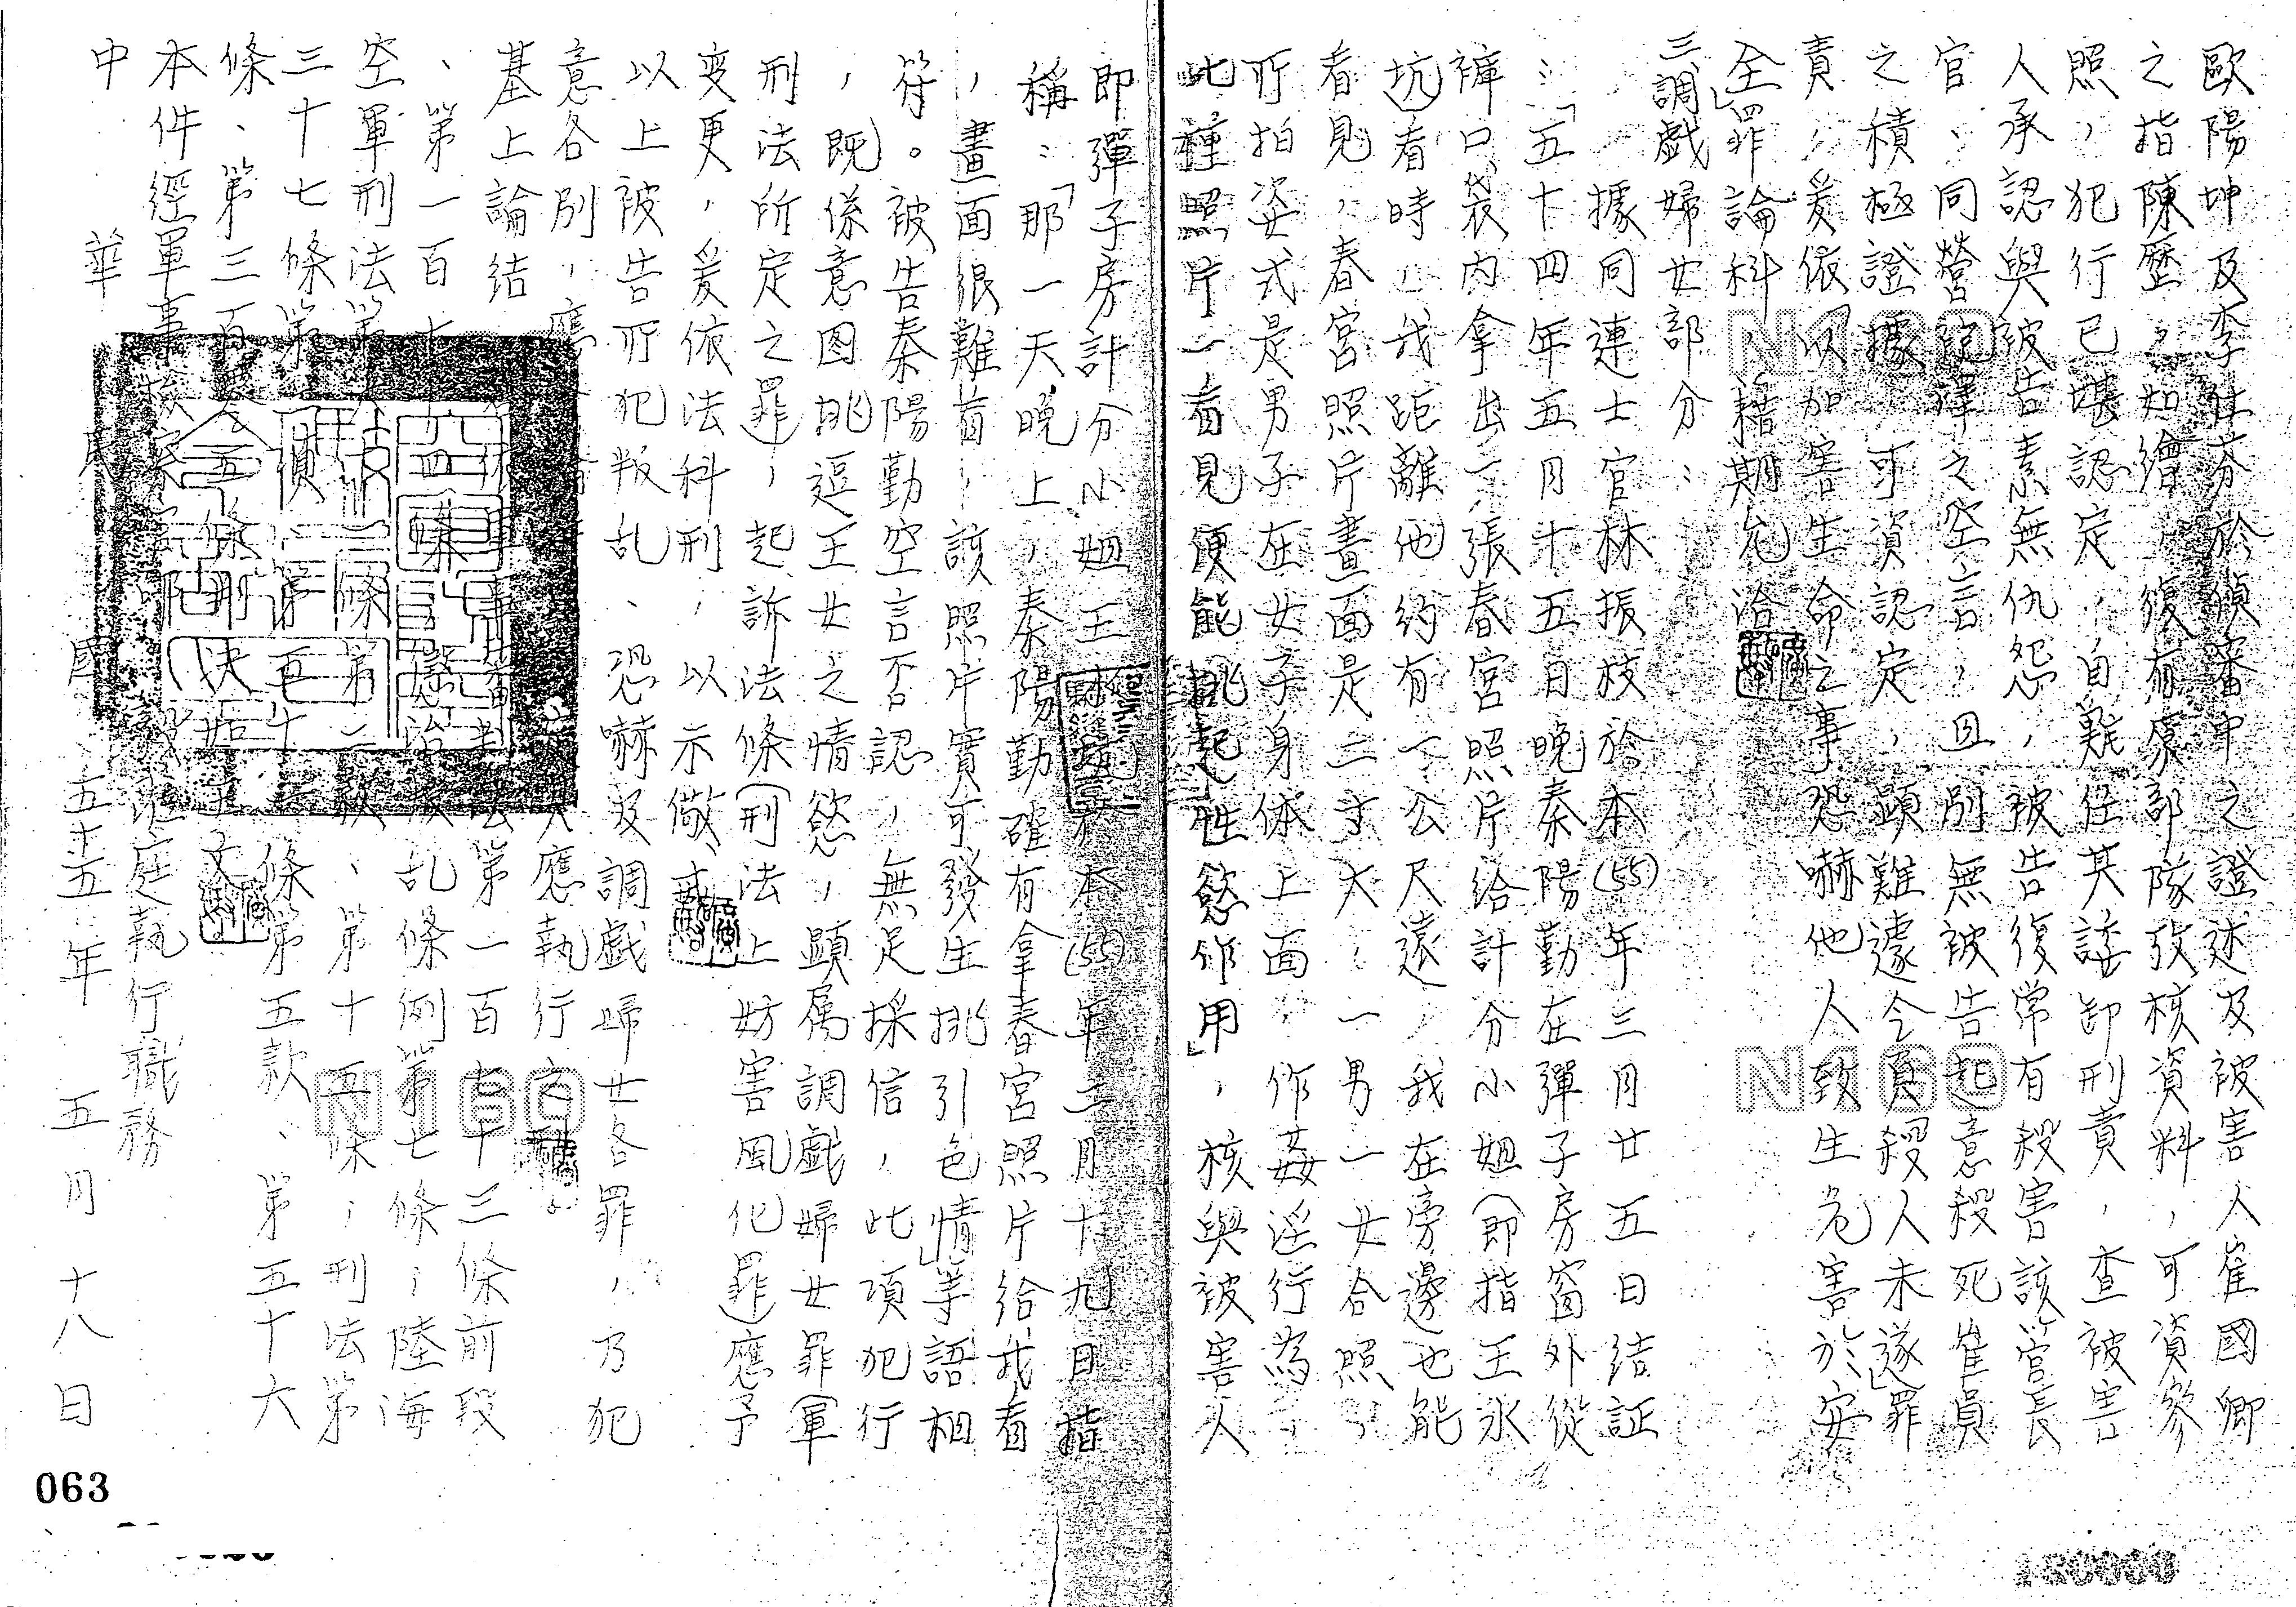 歐陽坤及李壯芬於偵審中之證述及被害人崔國卿
之指陳歷歷如繪，復有原部隊攷核資料，可資參
照，犯行已堪認定，自難任其諉卸刑責，查被害
人承認與被告素無仇怨，被告復常有殺害該管長
官、同營之空言，且別無被告起意殺死崔員
之積極證據可資認定，顯難遽令負殺人未遂」罪
責，爰依以加害生命之事恐嚇他人致生危害於安
全」罪論科，藉期允洽
三、調戲婦女部分：
據同連士官林振枝於本(55)年三月廿五日結証
：「五十四年五月十五日晚秦陽勤在彈子房窗外從
褲口袋內拿出一張春宮照片給計分小姐（即指王永
坑）看時，我距離他約有一公尺遠，我在旁邊也能
看見，春宮照片畫面是二寸大，一男一女合照，
所拍姿式是男子在女子身体上面，作姦淫行為，
此種照片一看見便能挑起性慾作用」，核與被害人
即彈子房計分小姐王 本(55)年三月十九日指
稱：「那一天晚上，秦陽勤確有拿春宮照片給我看
，畫面很難看，該照片實可發生挑引色情」等語相
符。被告秦陽勤空言否認，無足採信，此項犯行
，既係意图挑逗王女之情慾，顯属調戲婦女罪（軍
刑法所定之罪），起訴法條（刑法上妨害風化罪）應予
变更，爰依法科刑，以示儆戒
以上被告所犯叛乱、恐嚇及調戲婦女各罪，乃犯
意各別，應 應執行
基上論結 第一百七十三條前段
、第一百七 懲治叛乱條例第七條；陸海
空軍刑法第 條第二款、第十五條；刑法第
三十七條第 第五十 條第五款、第五十六
條、第三百零五條判決如主文
本件經軍事檢察官 蒞庭執行職務
中華民國五十五年五月十八日
063
N160
N160
N160